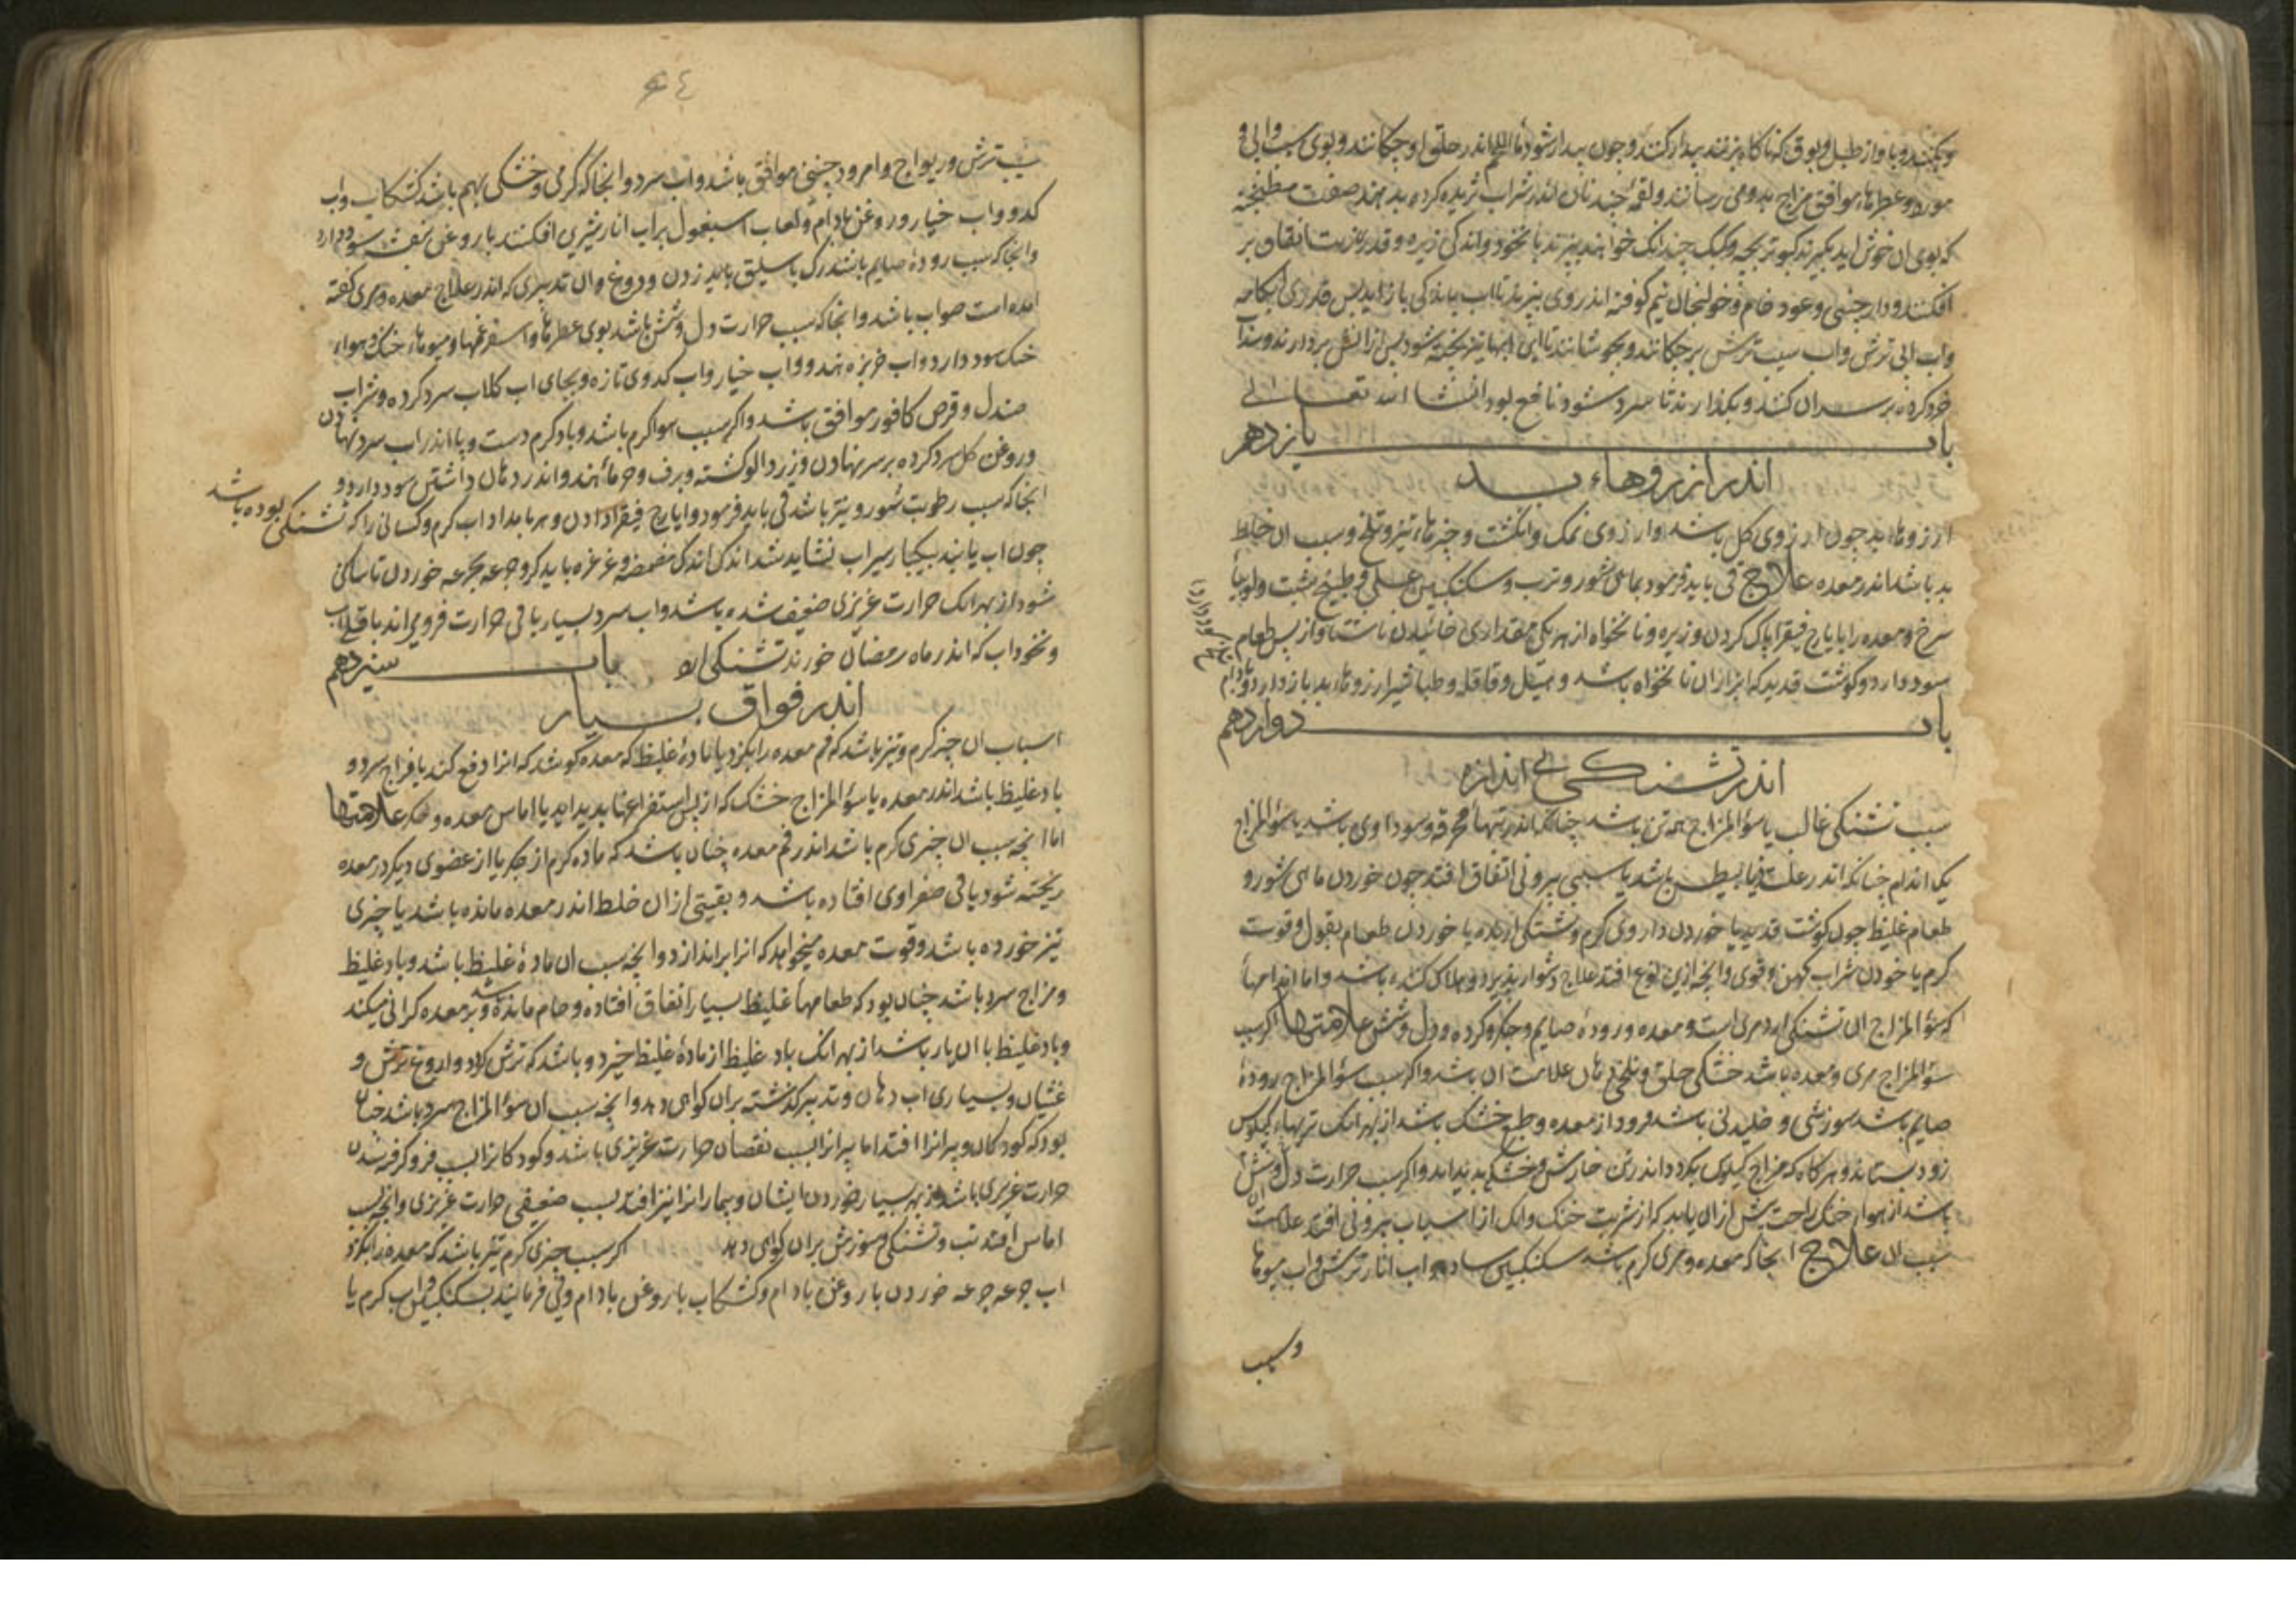 وبجنبانند وباواز طبل وبوق که ناکاه بزنند بیدار کنند وجون بیدار شود ماء اللحم اندر حلق او جکانند وبوی سیب وابی و
مورد وعطرهاء موافق مزاج بدو می رسانند ولقمهٔ جند نان اندر شراب ثرید کرده بدهند صفت مطنجنه
که بوی ان خوش اید بکیرند کبوتر بجه وکبک جندانک خواهند بپزند با نخود واندکی زیره وقدری زیت انفاق بر
افکنند ودارجینی وعود خام وخولنجان نیم کوفته اندر وی بپزند تا اب باندکی باز اید پس قدری ابکامه
واب ابی ترش واب سیب ترش برجکانند وبجوشانند تا این ابها نیز پخته شود پس از اتش بردارند وسداب
خرد کرده بر سر ان کنند وبکذارند تا سرد شود نافع بود انشا الله تعالی
باب یازدهم
اندر ارزوهاء بد
ارزوهاء بد جون ارزوی کل باشد وارزوی نمک وانکشت وجیزهاء تیز وتلخ وسبب ان خلط
بد باشد اندر معده علاج قی باید فرمود بماهی شور وترب وسکنکبین عسلی وطبیخ شبت ولوبیا
سرخ ومعده را بایارج فیقرا پاک کردن وزیره ونانخواه از هر یکی مقداری خائیدن ناشتا واز پس طعام
سود دارد وکوشت قدید که ابزار ان نانخواه باشد وهیل وقاقله وطباشیر ارزوهاء بد باز دارد
باب دوازدهم
اندر تشنکی بی اندازه
سبب تشنکی غالب یا سؤالمزاج همه تن باشد جنانکه اندر تبهاء محرقه وسوداوی باشد یا سؤالمزاج
یک اندام جنانکه اندر علت ذیابیطس باشد یا سببی بیرونی اتفاق افتد جون خوردن ماهی شور و
طعام غلیظ جون کوشت قدید یا خوردن داروی کرم وتشنکی ارنده یا خوردن طعام بقول وقوت
کرم یا خوردن شراب کهن وقوی وانجه ازین نوع افتد علاج دشوار پذیرد وهلاک کننده باشد واما اندامها
که سؤالمزاج ان تشنکی ارد مری است ومعده ورودهٔ صایم وجکر وکرده ودل وشش علامتها اکر سبب
سؤالمزاج مری ومعده باشد خشکی حلق وتلخی دهان علامت ان باشد واکر سبب سؤالمزاج رودهٔ
صایم باشد سوزشی وخلیدنی باشد فرود از معده وطبع خشک باشد از بهر انک تریهاء کیلوس
زود بستاند وهر کاه که مزاج کیلوس بکردد اندر تن خارش وخشکی پدید اید واکر سبب حرارت دل وشش
باشد از هواء خنک راحت بیش ازان یابد که از شربت خنک وانک از اسباب بیرونی افتد علامت ان
سبب ان علاج انجا که معده ومری کرم باشد سکنکبین ساده واب انار ترش واب میوها
وسیب

سیب ترش وریواج وامرود جینی موافق باشد واب سرد وانجا که کرمی وخشکی بهم باشد کشکاب واب
کدو واب خیار وروغن بادام ولعاب اسبغول بر اب انار شیرین افکنند با روغن بنفشه سود دارد
وانجا که سبب رودهٔ صایم باشد رک باسلیق باید زدن ودوغ وان تدبیری که اندر علاج معده ومری کفته
امده است صواب باشد وانجا که سبب حرارت دل وشش باشد بوی عطرها واسفرغمها ومیوهاء خنک وهواء
خنک سود دارد واب خربزه هندو واب خیار واب کدوی تازه وبجای اب کلاب سرد کرده وشراب
صندل وقرص کافور موافق باشد واکر سبب هواء کرم باشد وباد کرم دست وپا اندر اب سرد نهادن
وروغن کل سرد کرده بر سر نهادن وزردالو کشته وبرف وخرماء هندو اندر دهان داشتن سود دارد و
انجا که سبب رطوبت شور وتیز باشد قی باید فرمود وایارج فیقرا دادن وهر بامداد اب کرم وکسانی را که تشنکی بوده باشد
جون اب یابند بیکبار سیراب نشاید شد اندک اندک مضمضه وغرغره باید کرد وجرعه جرعه خوردن تا ساکن
شود از بهر انک حرارت غریزی ضعیف شده باشد واب سرد بسیار باقی حرارت فرو میراند باقلی اب
ونخود اب که اندر ماه رمضان خورند تشنکی ارد
باب سیزدهم
اندر فواق بسیار
اسباب ان جیز کرم وتیز باشد که فم معده را بکزد یا مادهٔ غلیظ که معده کوشد که انرا دفع کند یا مزاج سرد و
باد غلیظ باشد اندر معده یا سؤالمزاج خشک که از پس استفراغها پدید اید یا اماس معده وجکر علامتها
اما انجه سبب ان جیزی کرم باشد اندر فم معده جنان باشد که ماده کرم از جکر یا از عضوی دیکر در معده
ریخته شود یا قی صفراوی افتاده باشد وبقیتی ازان خلط اندر معده مانده باشد یا جیزی
تیز خورده باشد وقوت معده میخواهد که انرا براندازد وانجه سبب ان مادهٔ غلیظ باشد وباد غلیظ
ومزاج سرد باشد جنان بود که طعامهاء غلیظ بسیار اتفاق افتاده وخام مانده باشد وبر معده کرانی میکند
وباد غلیظ با ان یار باشد از بهر انک باد غلیظ از مادهٔ غلیظ خیزد وباشد که ترش کردد واروغ ترش و
غشیان وبسیاری اب دهان وتدبیر کذشته بران کواهی دهد وانجه سبب ان سؤالمزاج سرد باشد جنان
بود که کودکان وپیرانرا افتد اما پیرانرا بسبب نقصان حرارت غریزی باشد وکودکانرا بسبب فرو کرفته شدن
حرارت غریزی باشد از بهر بسیار خوردن ایشان وبیمارانرا نیز افتد بسبب ضعیفی حرارت غریزی وانجه بسبب
اماس افتد تب وتشنکی وسوزش بران کواهی دهد اکر سبب جیزی کرم تیز باشد که معده را بکزد
اب جرعه جرعه خوردن با روغن بادام وکشکاب با روغن بادام وقی فرمایند بسکنکبین واب کرم یا